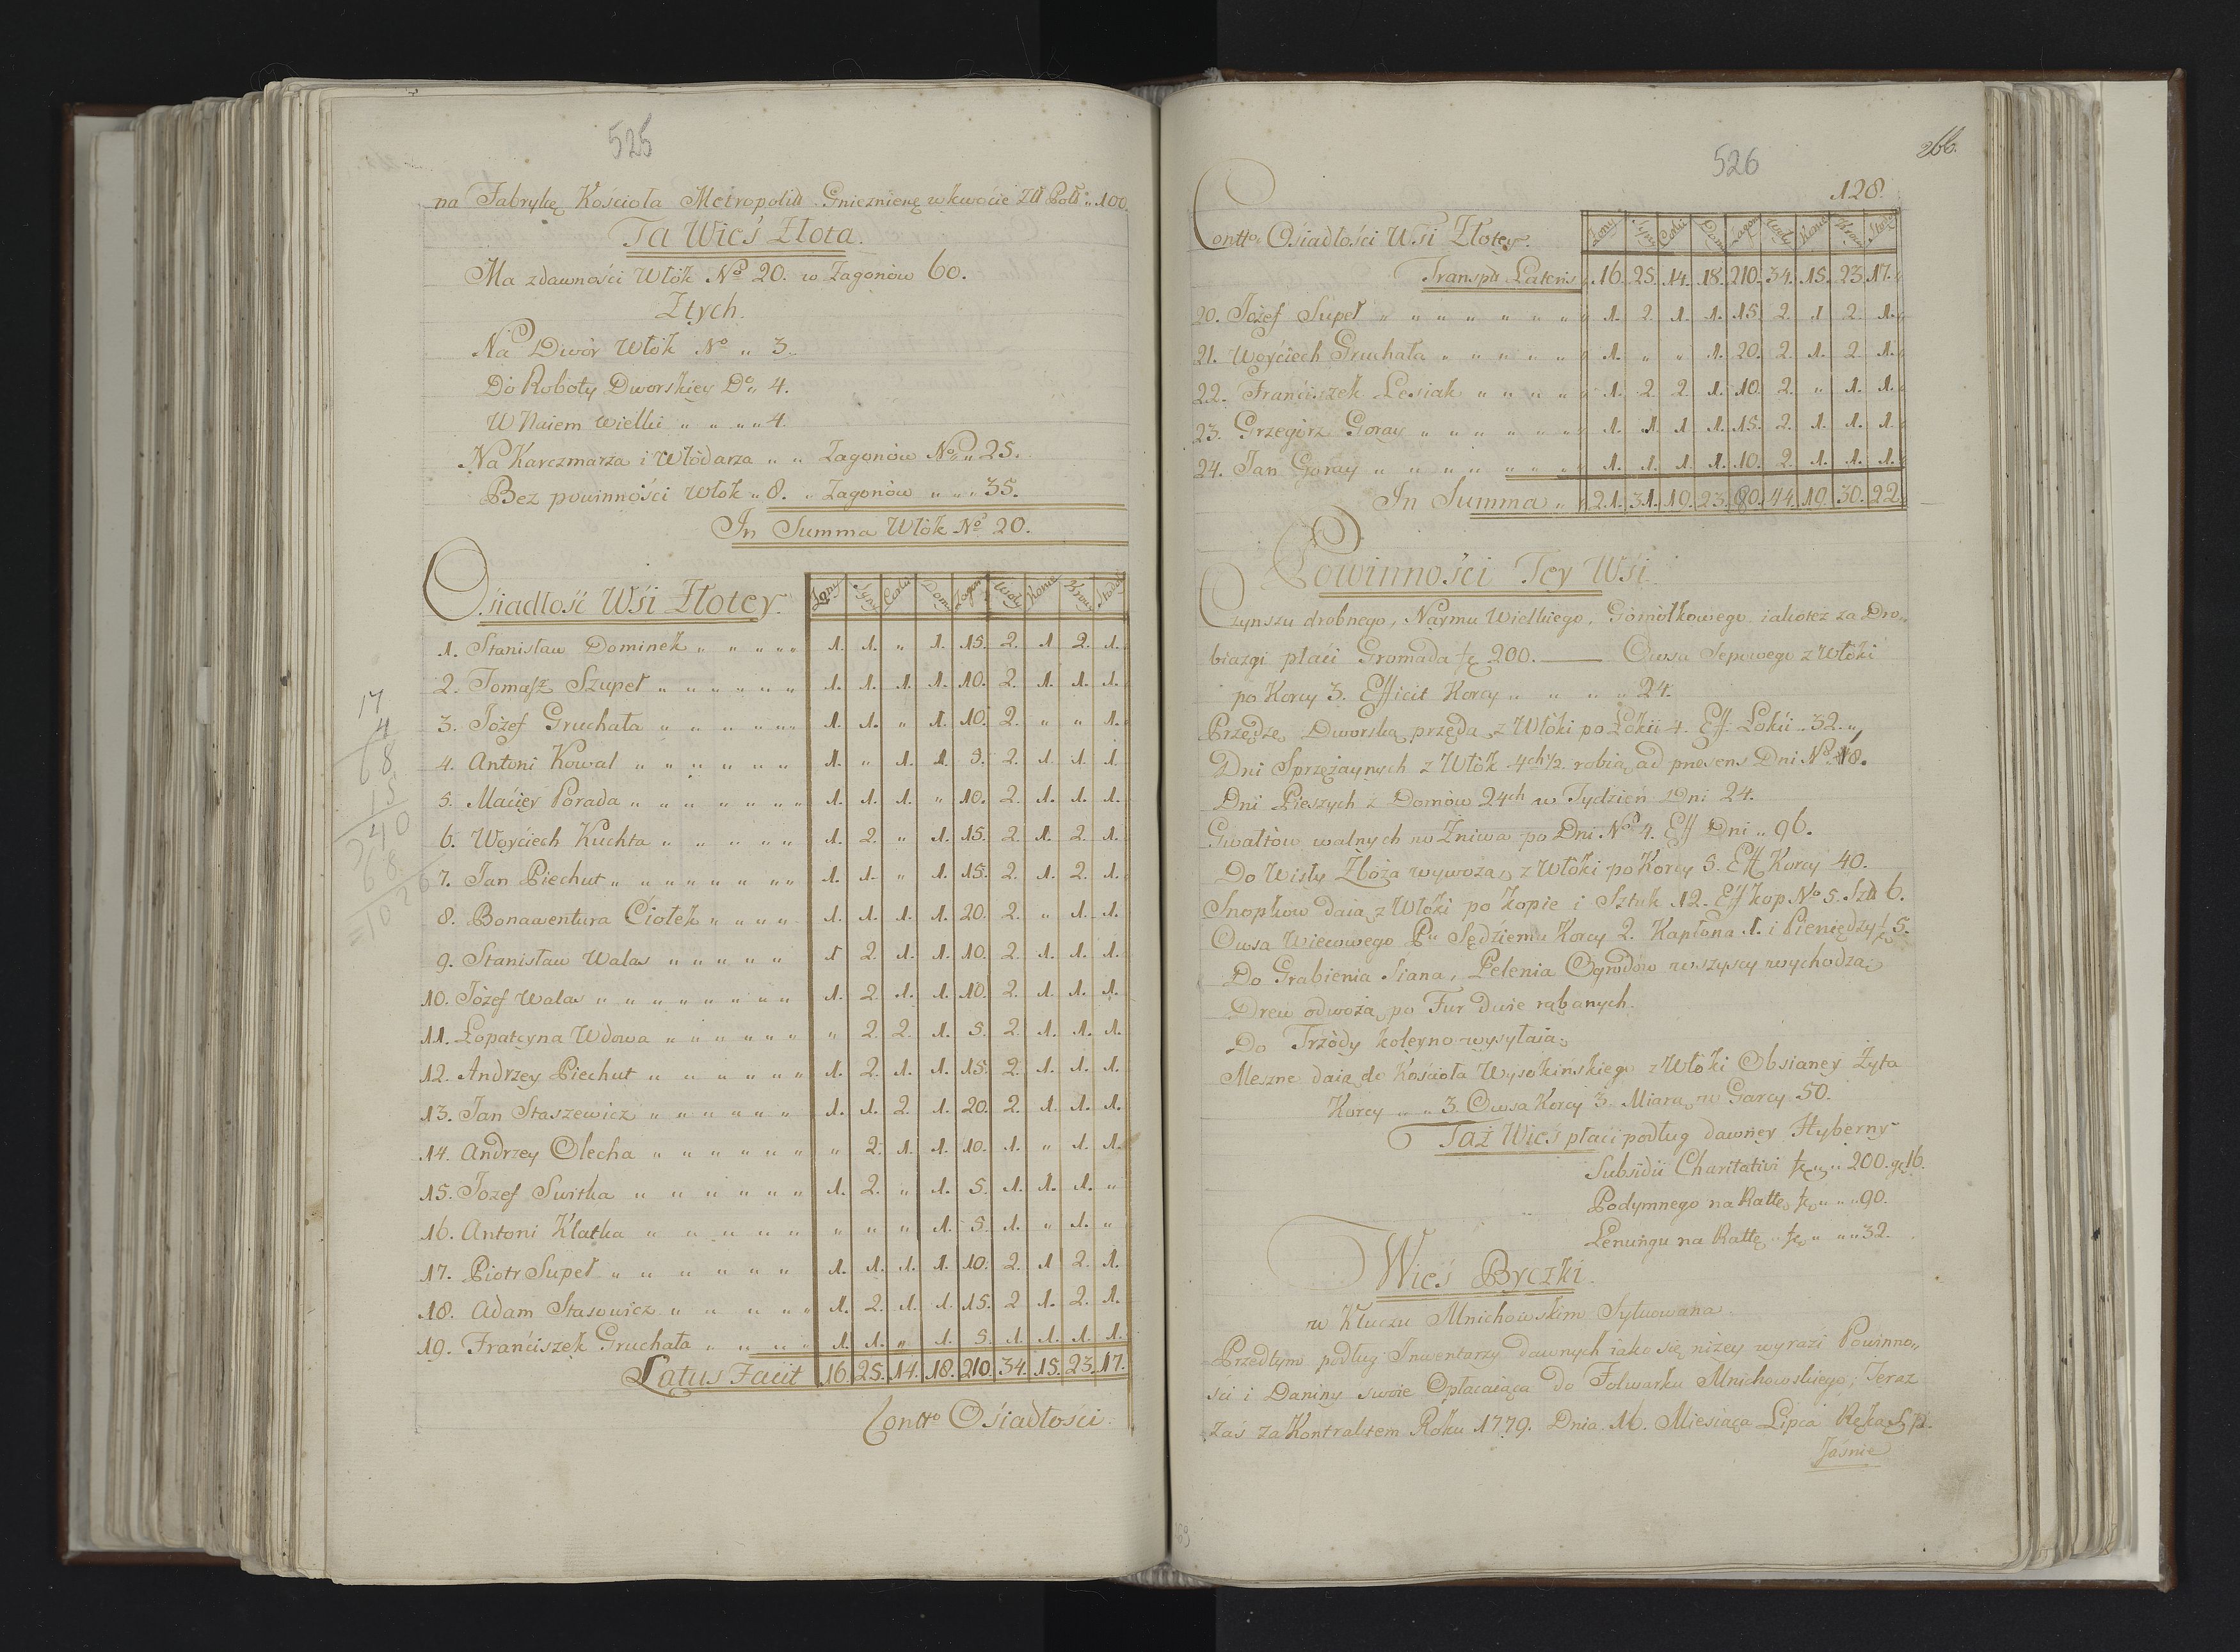 525
na Fabrykę Kościoła Metropolit Gnieznienę w kwocie Złł Poll „ 100.
Ta Wieś Złota.
Ma zdawności Włók No 20. w Zagonów 60.
Ztych.
Na Dwór Włók No „ 3.
Do Roboty Dworskiey Do „ 4.
W Naiem wielki „ „ „ „ 4.
Na Karczmarza i Włódarza „ „ Zagonów No „ 25.
Bez powinności Włok „ 8. „ Zagonów „ „ „ 35.
In Summa Włók No 20.
Osiadłość Wśi Złotey. Żony Syny Corki Domy Zagony Woły Konie Krowy Stodoły
1. Stanisław Dominek „ „ „ „ „ 1. 1. „ 1. 15. 2. 1 2. 1.
2. Tomasz Szupeł „ „ „ „ „ „ 1. 1. 1. 1. 10. 2. 1. 1. 1.
3. Józef Gruchała „ „ „ „ „ „ 1. 1. „ 1. 10. 2. „ „ 1.
4. Antoni Kowal „ „ „ „ „ „ 1. „ 1. 1. 5. 2. 1. 1. 1.
5. Maciey Porada „ „ „ „ „ „ „ 1. 1. 1. „ 10. 2. 1. 1. 1.
6. Woyciech Kuchta „ „ „ „ „ 1. 2. „ 1. 15. 2. 1. 2. 1.
7. Jan Piechut „ „ „ „ „ „ „ „ 1. 1. „ 1. 15. 2. 1. 2. 1.
8. Bonawentura Ciołek „ „ „ „ 1. 1. 1. 1. 20. 2. „ 1. 1.
9. Stanisław Walas „ „ „ „ „ 1 2. 1. 1. 10. 2. 1. 1. 1.
10. Józef Walas „ „ „ „ „ „ „ „ 1. 2. 1. 1. 10. 2. 1. 1. 1.
11. Łopatcyna Wdowa „ „ „ „ „ „ „ 2. 2. 1. 5. 2. 1. 1. 1.
12. Andrzey Piechut „ „ „ „ „ „ 1. 2. 1. 1. 15. 2. 1. 1. 1.
13. Jan Staszewicz „ „ „ „ „ „ 1. 1. 2. 1. 20. 2. 1. 1. 1.
14. Andrzey Olecha „ „ „ „ „ „ „ 2. 1. 1. 10. 1. „ 1. 1.
15. Jozef Switka „ „ „ „ „ „ 1. 2. „ 1. 5. 1. 1. 1. „
16. Antoni Klatka „ „ „ „ „ „ „ „ „ 1. 5. 1. „ 1. „
17. Piotr Supeł „ „ „ „ „ „ „ 1. 1. 1. 1. 10. 2. 1 2. 1.
18. Adam Stasowicz „ „ „ „ „ 1. 2. 1. 1. 15. 2 1. 2. 1.
19. Franciszek Gruchała „ „ „ „ 1. 1. „ 1. 5. 1. 1. 1. 1.
Latus Facit 16. 25. 14. 18. 210. 34. 15. 23. 17.
Contto Ośiadłości.
17
4
68
15
340
68.
=1020
526
266.
128.
Contto Ośiadłości Wśi Złotey. Żony Syny Corki Domy Zagony Woły Konie Krowy Stodoły
Transpt Lateris 16. 25. 14. 18. 210. 34. 15. 23. 17.
20. Józef Supeł „ „ „ „ „ „ „ 1. 2. 1. 1. 15. 2. 1 2. 1.
21. Woyciech Gruchała „ „ „ „ „ „ 1. „ „ 1. 20. 2. 1. 2. 1.
22. Franciszek Lesiak „ „ „ „ „ 1. 2. 2. 1. 10. 2. „ 1. 1.
23. Grzegórz Goray „ „ „ „ „ „ „ 1. 1. 1 1. 15. 2. 1. 1. 1.
24. Jan Goray „ „ „ „ „ „ „ „ 1. 1. 1. 1. 10. 2. 1. 1. 1.
In Summa „ 21. 31. 19. 23. 80. 44. 19. 30. 22.
Powinności Tey Wśi.
Czynszu drobnego, Naymu Wielkiego, Gómółkowego iakoteż za Dro„
biazgi płaci Gromada fę 200. — Owsa Sepowego z Włóki
po Korcy 3. Efficit Korcy „ „ „ „ 24.
Przędzę Dworską przędą z Włóki po Łokci 4. Eff. Łokci „ 32. „
Dni Sprzężaynych z Włók 4ch 1/2. robią ad presens Dni No 18.
Dni Pieszych z Domów 24ch w Tydzień Dni 24.
Gwałtów walnych w Żniwa po Dni No 4. Eff Dni „ 96.
Do Wisły Zboża wywożą z Włóki po Korcy 5. Eff Korcy 40.
Snopków daią z Włóki po kopie i Sztuk 12. Eff kop No 5. Szt 6.
Owsa Wiecowego Pu Sędziemu Korcy 2. Kapłona 1. i Pieniędzy fę 5.
Do Grabienia Siana, Pelenia Ogrodów wszyscy wychodzą
Drew odwożą po Fur dwie rąbanych.
Do Trzódy koleyno wysyłaią
Meszne daią do Kościoła Wysokinskiego z Włóki Obsianey Żyta
Korcy „ „ 3. Owsa Korcy 3. Miarą w Garcy 50.
Taż Wieś płaci podług dawney Hyberny
Subsidii Charitativi fę „ „ 200. gę 16.
Podymnego na Rattę fę „ „ „ 90.
Lenungu na Rattę „ fę „ „ „ 32.
Wieś Byczki.
w Kluczu Mnichowskim Sytuowana.
Przedtym podług Inwentarzy dawnych iako się niżey wyrazi Powinno„
ści i Daniny swoie Opłacaiąca do Folwarku Mnichowskiego, Teraz
Zaś za Kontraktem Roku 1779. Dnia 16. Miesiąca Lipca Ręką
Jaśnie